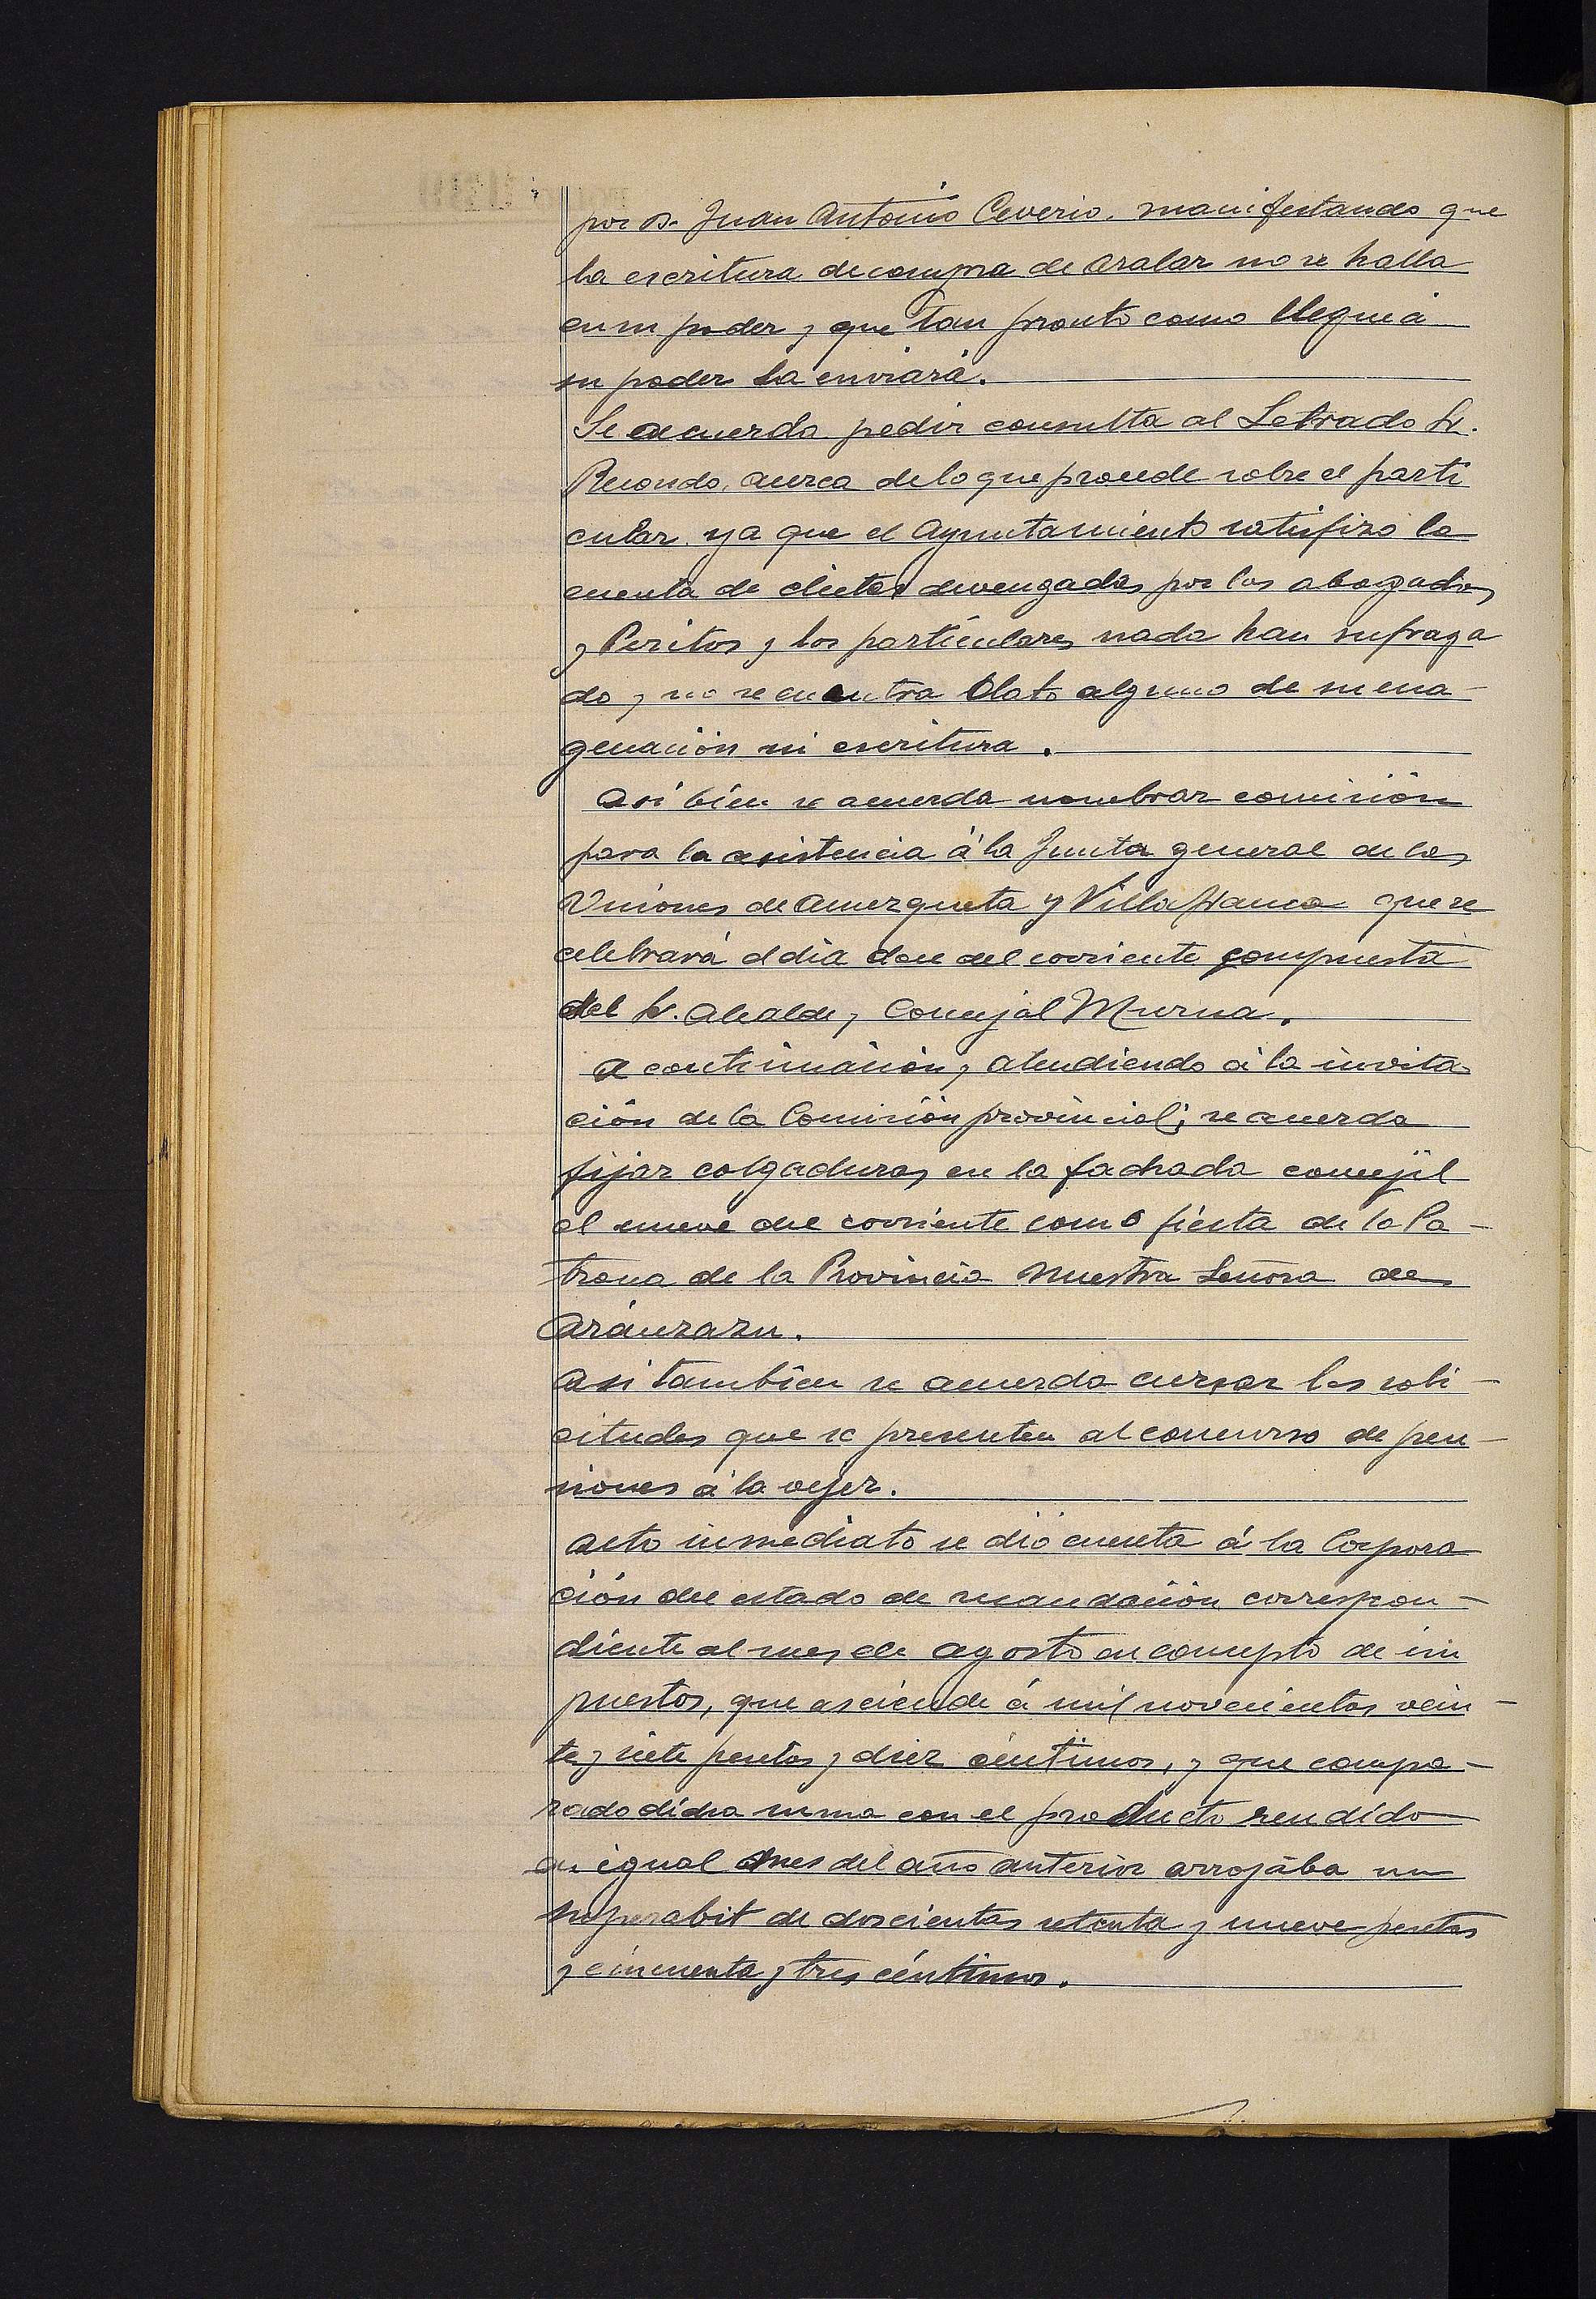 por D. Juan Antonio Ceverio. manifestando que
la escritura de compra de Aralar no se halla
en su poder y que tan pronto como llegue á
su poder la enviará.
Se acuerda pedir consulta al Letrado Sr.
Recondo, acerca de lo que procede sobre el parti
cular ya que el Ayuntamiento satisfizo la
cuenta de dietas devengadas por los abogados
y Peritos y los particulares nada han sufraga
do y no se encuentra dato alguno de su ena-
genación ni escritura.
Así bien se acuerda nombrar comisión
para la asistencia á la Junta general de las
Uniones de Amezqueta y Villafranca que se
celebrará el día doce del corriente compuesta
del Sr. Alcalde y Concejal Murua.
A continuación y atendiendo á la invita
ción de la Comisión provincial; se acuerda
fijar colgaduras en la fachada concejil
el nueve del corriente como fiesta de la Pa-
trona de la Provincia Nuestra Señora de
Aránzazu.
Asi tambien se acuerda cursar las soli-
citudes que se presenten al concurso de pen-
siones á la vejez.
Acto inmediato se dió cuenta á la Corpora
ción del estado de recaudación correspon-
diente al mes de agosto en concepto de im
puestos, que asciende á mil novecientas vein-
te y siete pesetas y diez céntimos, y que compa-
rado dicha suma con el producto rendido
en igual mes del año anterior arrojába un
superabit de doscientas setenta y nueve pesetas
y cincuenta y tres céntimos.